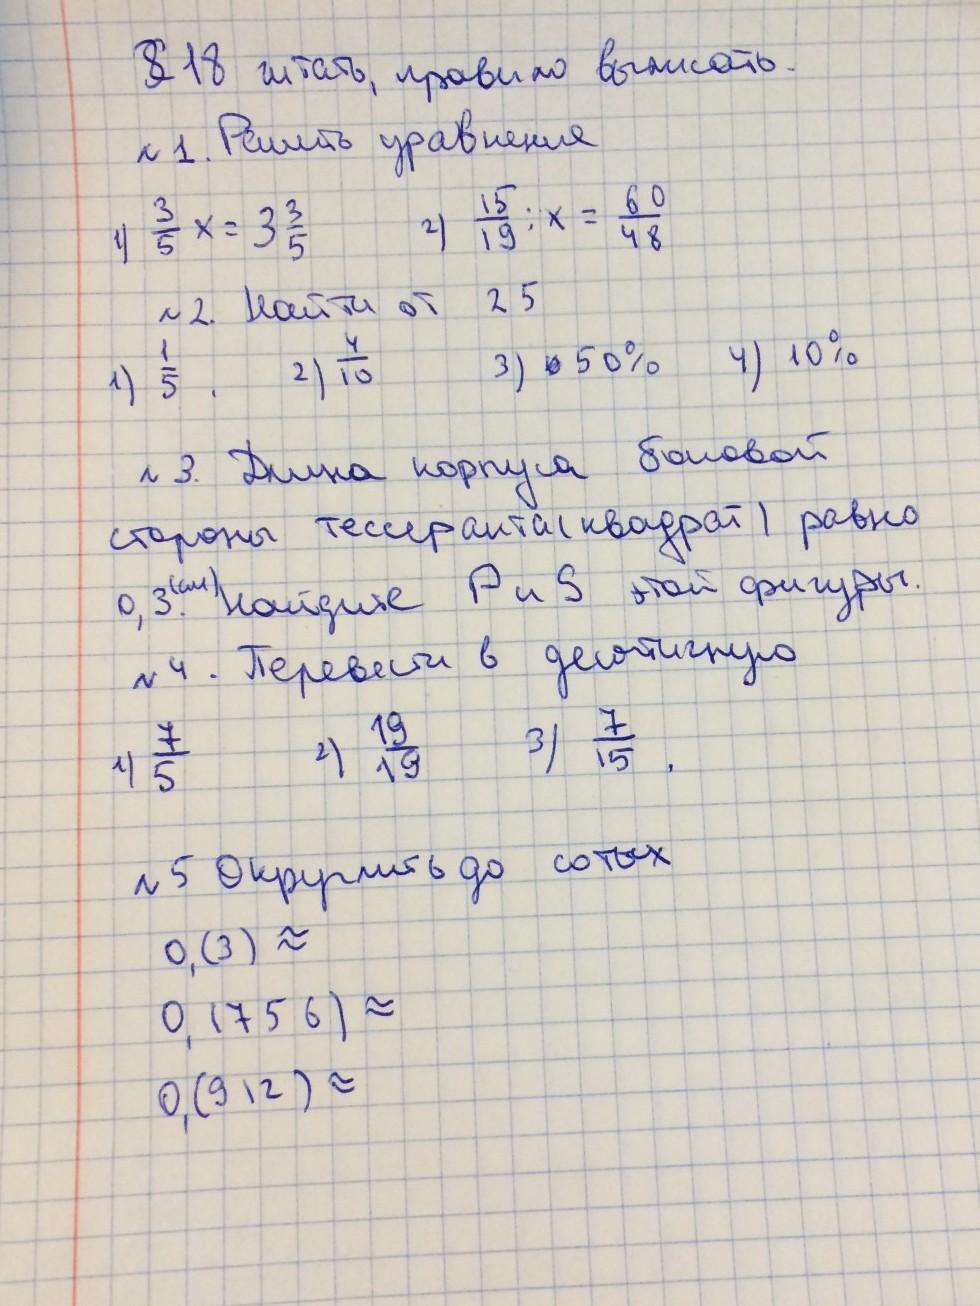 § 18 читать, правило выписать.
№1. Решить уравнения
1) 3/5 x = 3 3/5 2) 15/19 : x = 60/48
№2. Найти от 25
1) 1/5. 2) 4/10 3) 50% 4) 10%
№3. Длина корпуса боковой
стороны тессеракта (квадрат) равно
0,3.(см) Найдите P и S этой фигуры.
№4. Перевести в десятичную
1) 7/5 2) 19/19 3) 7/15.
№5 Округлить до сотых
0,(3) ≈
0,(756) ≈
0,(912) ≈